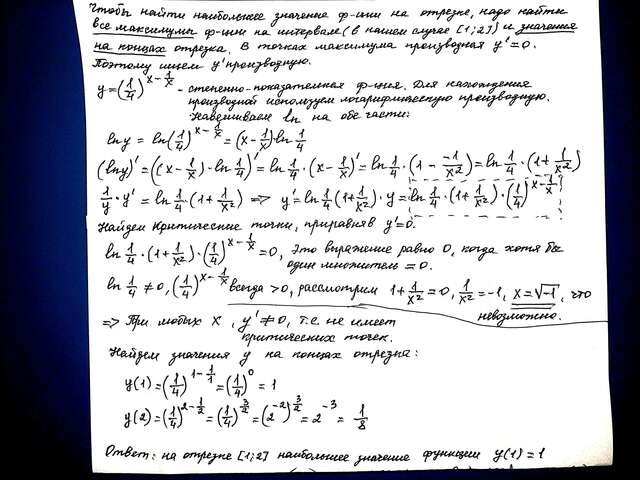 Чтобы найти наибольшее значение ф-ции на отрезке, надо найти
все максимумы ф-ции на интервале (в нашем случае [1;2]) и значения
на концах отрезка. В точках максимума производная y'=0.
Поэтому ищем y' производную.
y=(1/4)^(x-1/x) - степенно-показательная ф-ция. Для нахождения
производной используем логарифмическую производную.
Навешиваем ln на обе части:
ln y = ln(1/4)^(x-1/x) = (x-1/x)·ln 1/4
(ln y)' = ((x-1/x)·ln 1/4)' = ln 1/4·(x-1/x)' = ln 1/4·(1 - -1/x²) = ln 1/4·(1+1/x²)
1/y·y' = ln 1/4·(1+1/x²) => y' = ln 1/4(1+1/x²)·y = ln 1/4·(1+1/x²)·(1/4)^(x-1/x)
Найдем критические точки, приравняв y'=0.
ln 1/4·(1+1/x²)·(1/4)^(x-1/x)=0, Это выражение равно 0, когда хотя бы
один множитель = 0.
ln 1/4 ≠ 0, (1/4)^(x-1/x) всегда >0, рассмотрим 1+1/x²=0, 1/x²=-1, x=√-1, что
невозможно.
=> При любых x, y'≠0, т.е. не имеет
критических точек.
Найдем значения y на концах отрезка:
y(1)=(1/4)^(1-1/1)=(1/4)^0=1
y(2)=(1/4)^(2-1/2)=(1/4)^(3/2)=(2^-2)^(3/2)=2^-3=1/8
Ответ: на отрезке [1;2] наибольшее значение функции y(1)=1